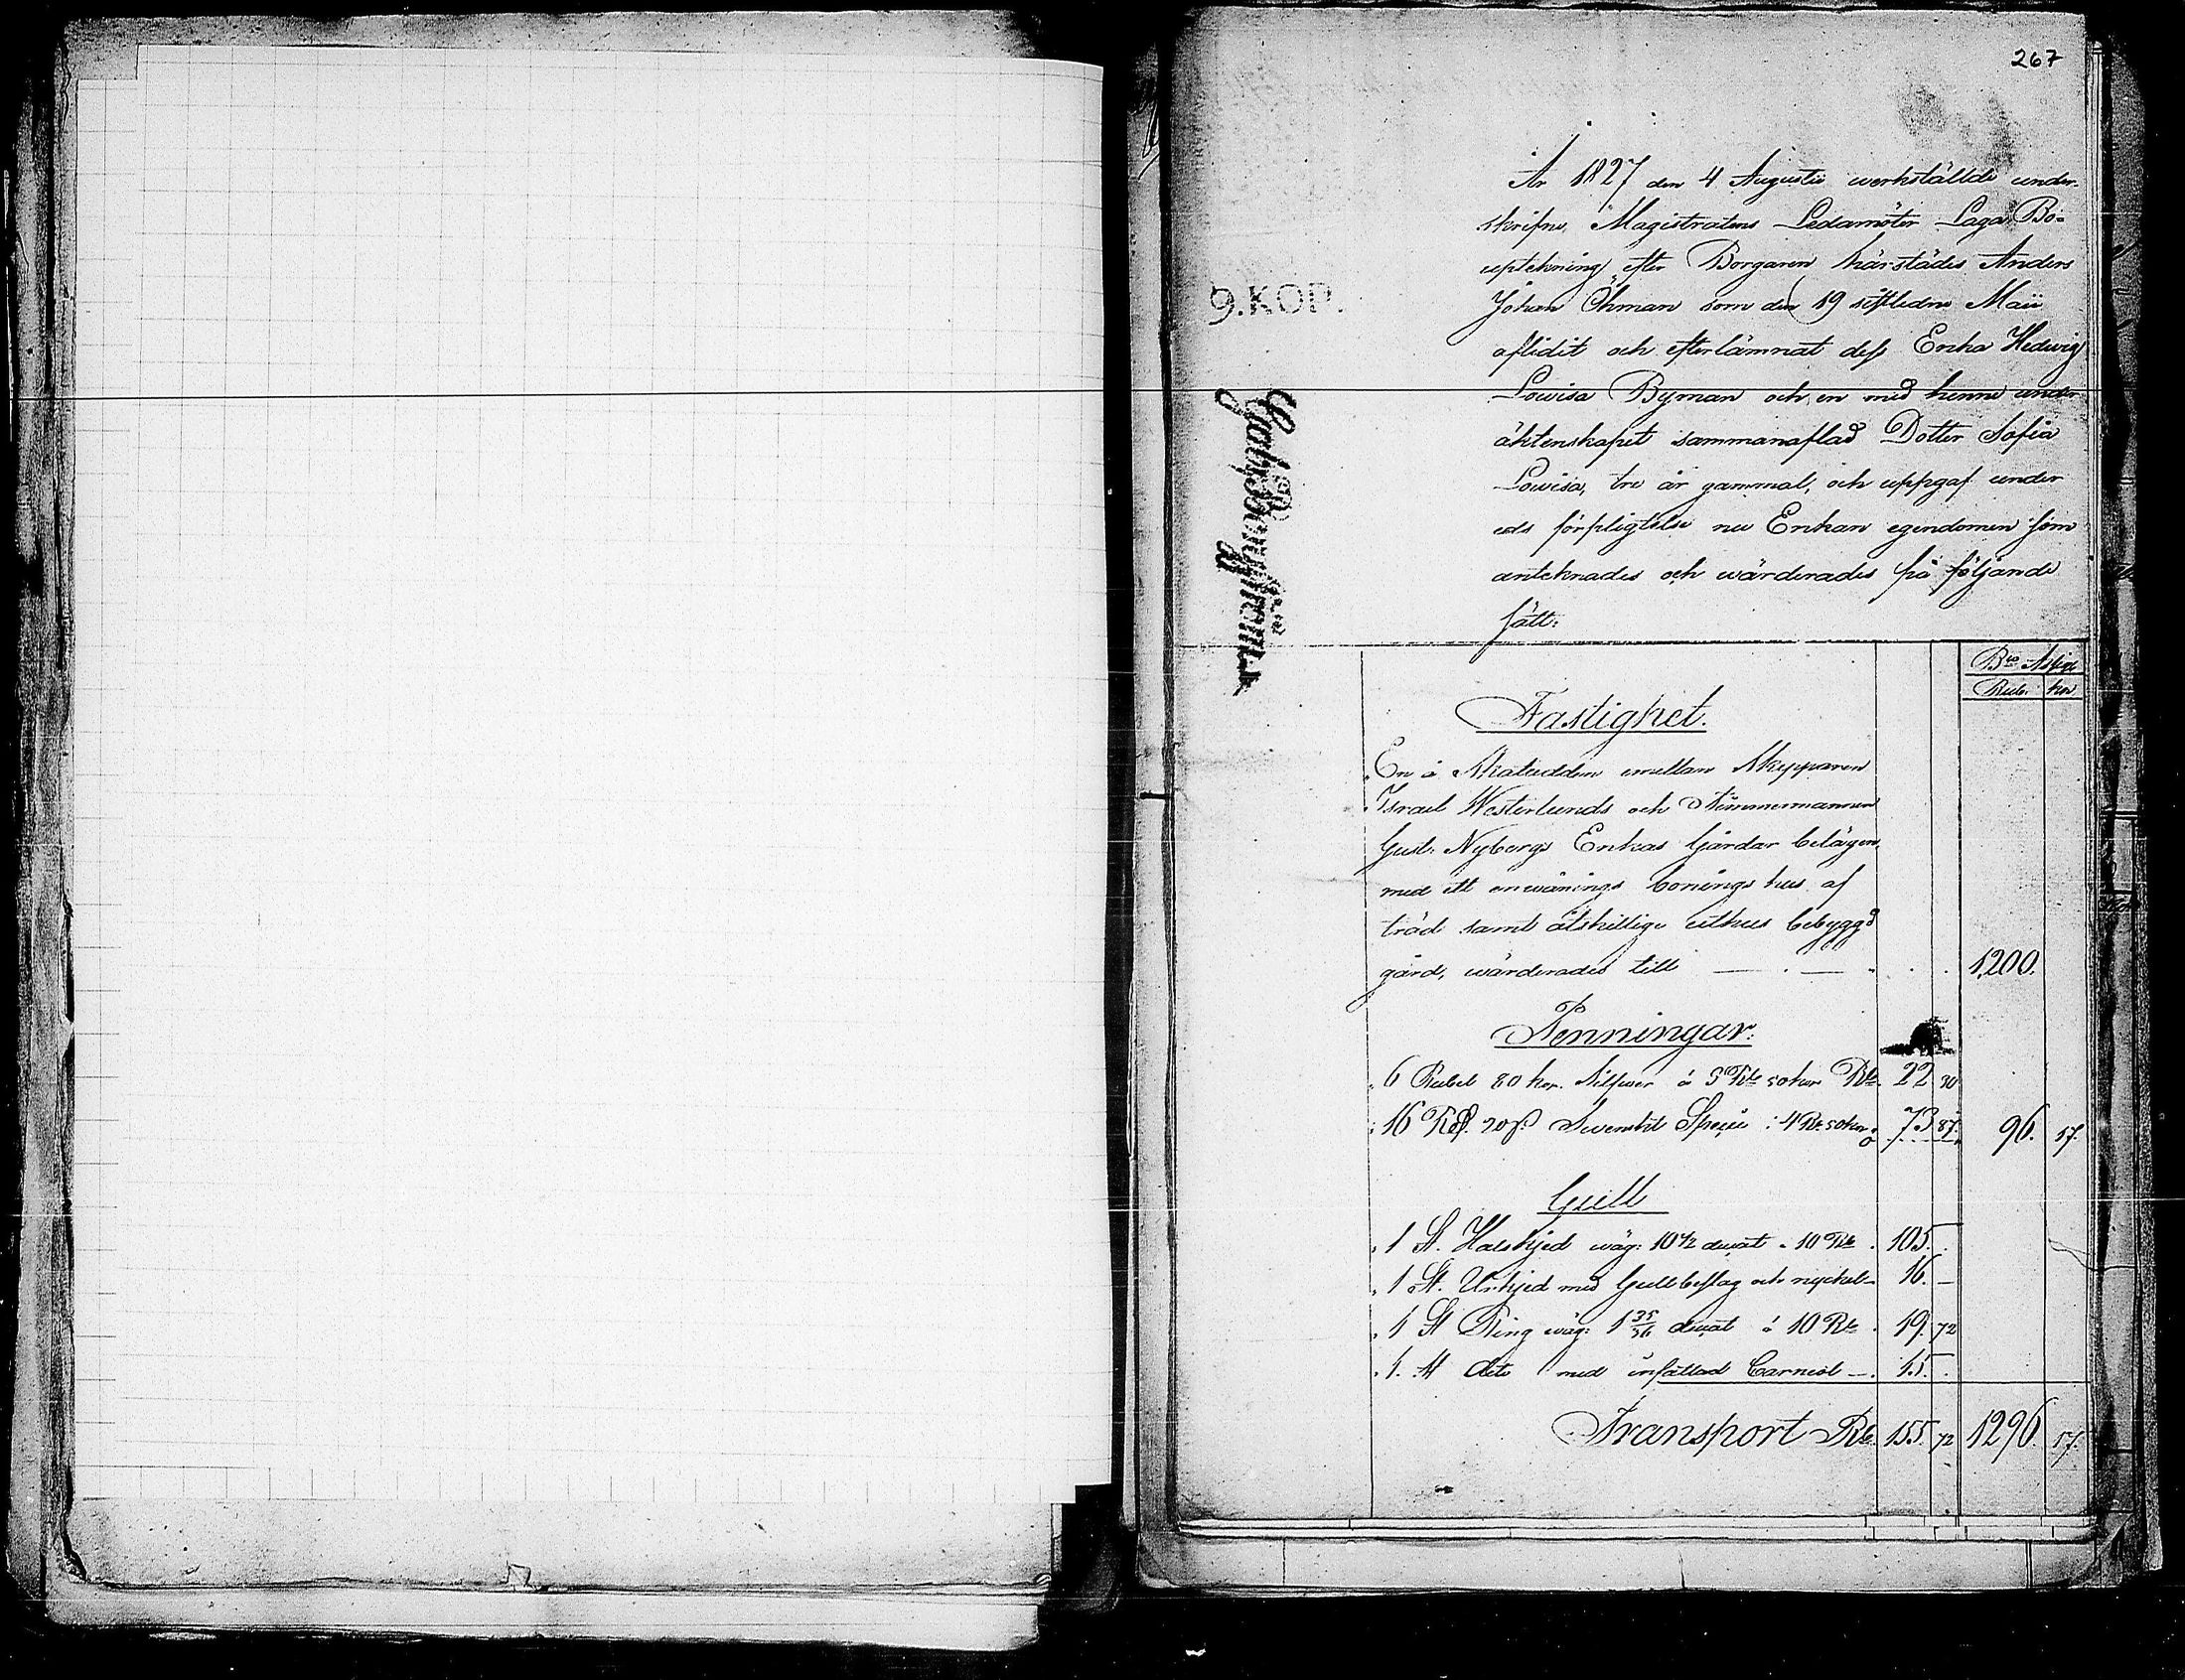 267
År 1827 den 4 Augustii werkställde under-
skrifne, Magistratens Ledamöter Laga Bo-
uptekning efter Borgaren härstädes Anders
Johan Öhman som den 19 sistledne Maii
aflidit och efterlämnat dess Enka Hedwig
Lowisa Byman och en med henne under
äktenskapet sammanaflad Dotter Sofia
Lowisa, tre år gammal, och uppgaf under
eds förpligtelse nu Enkan egendomen som
anteknades och wärderades på följande
sätt:
9.KOP.
Bco Assign
Rub. kop
Fastighet.
En å Skatudden emellan Skepparen
Israel Westerlunds och Timmermannen
Gust. Nybergs Enkas Gårdar belägen,
med ett enwånings bonings hus af
träd samt åtskillige uthus bebyggd
gård, wärderades till 1200.
Penningar.
6 Rubel 80 kop. Silfwer à 3 Rbl 50 kop Rbl. 22 30
16 Rd. 20 s. Swenskt Specie 4 Rb. 50 kop 73 87. 96. 17.
Gull
1 St. Halskjed wäg: 10 1/2 ducat à 10 Rbl 105.
1 St. Urkjed med Gullbeslag och nyckel 16. –
1 St Ring wäg: 1 ducat à 10 Rb 19. 72
1 St dito med infattad Carneol 15.
Transport Rb. 155. 72 1296. 17.